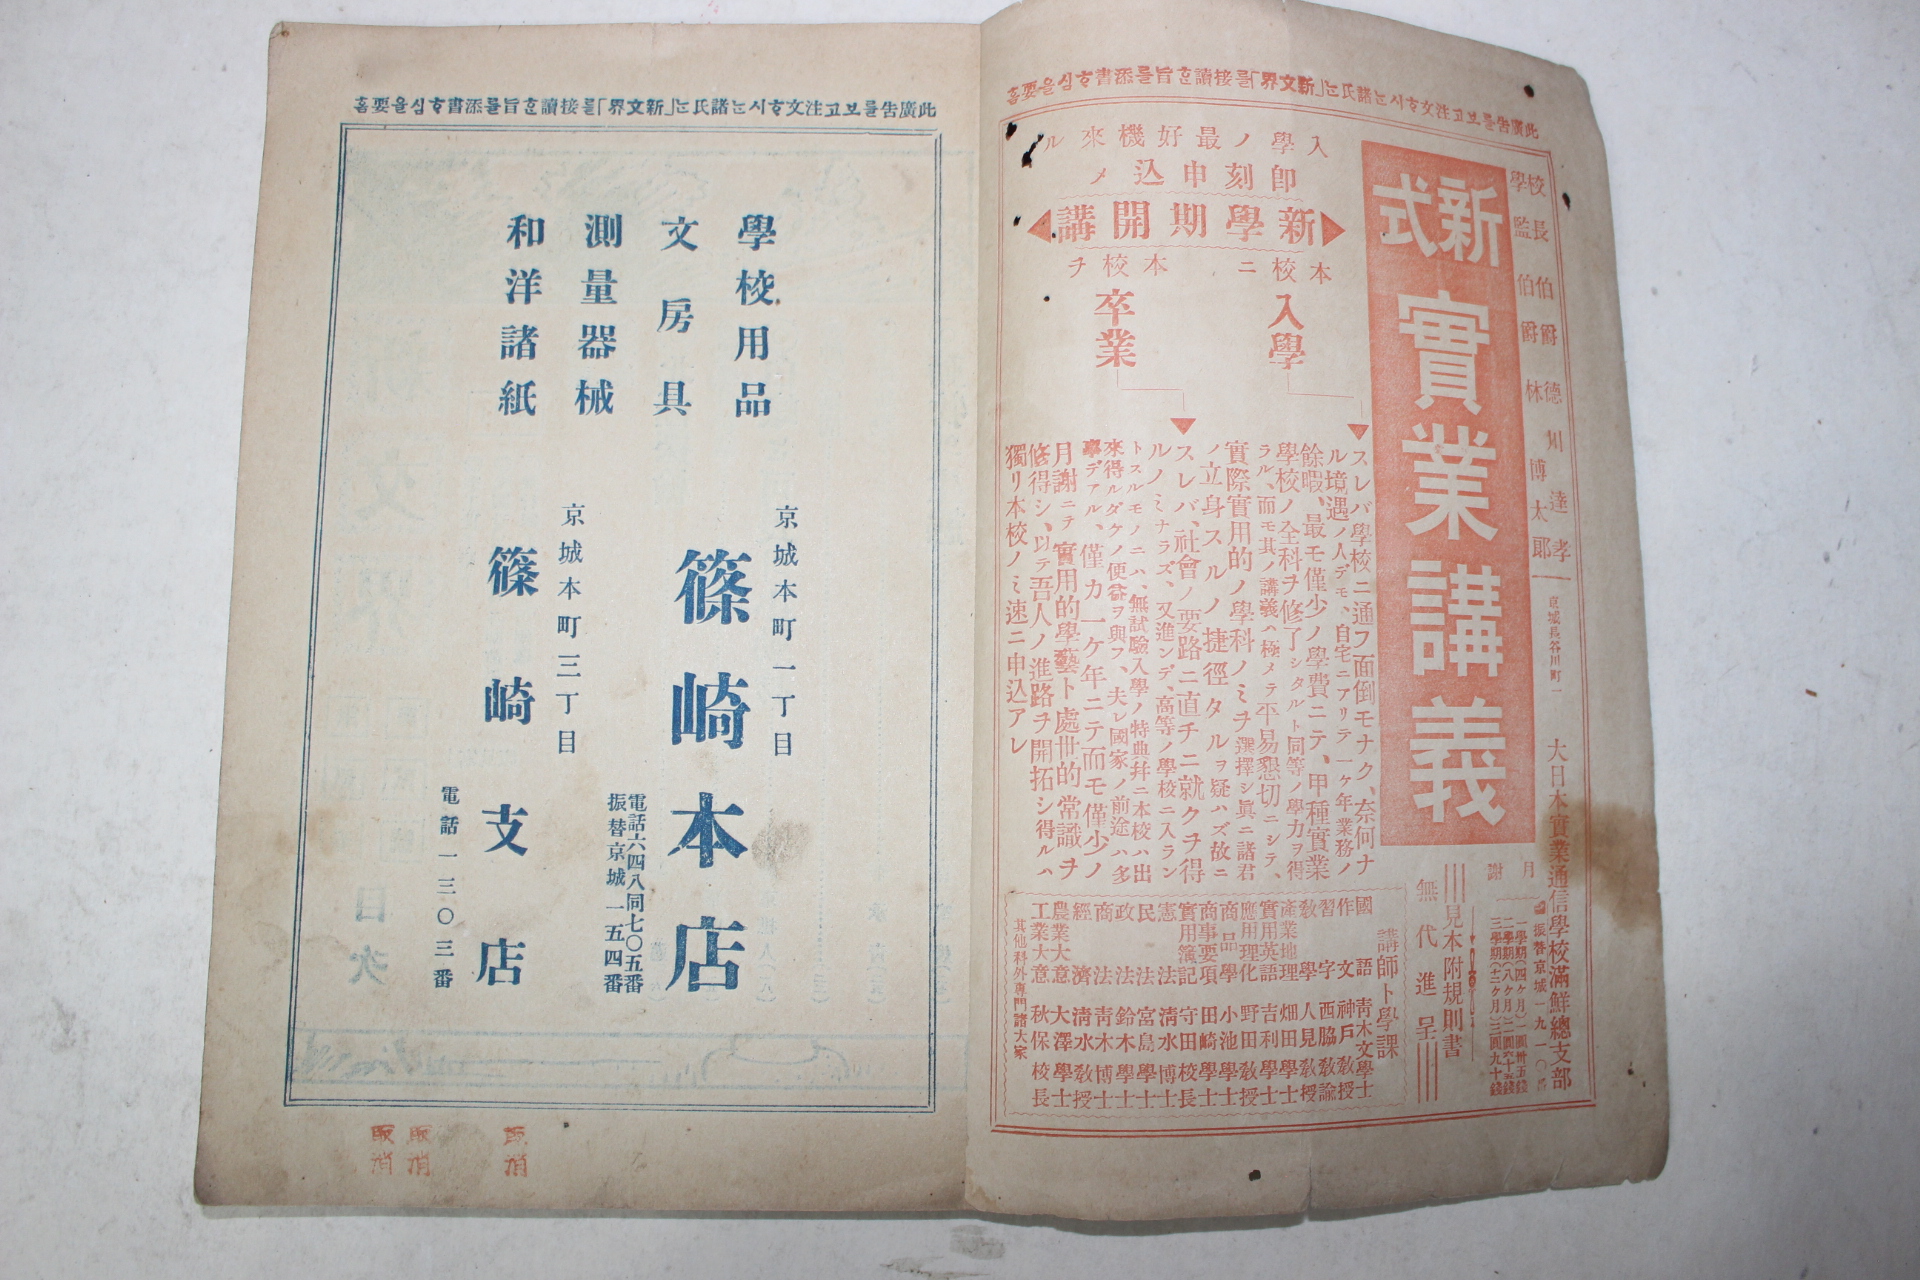 此廣告를보고注文하시는諸氏는「新文界」를接讀한旨를添書하심을要홈
校長 伯爵 德川達孝
學監 伯爵 林博太郎
京城長谷川町一
大日本實業通信學校滿鮮總支部
振替京城一九一〇番
新式 實業講義
月謝
一學期(四ケ月)一圓卅五錢
二學期(八ケ月)二圓六十五錢
三學期(十二ケ月)三圓九十錢
見本附規則書
無代進呈
入學ノ最好機來ル
即刻申込メ
新學期開講
本校ニ入學
スレバ學校ニ通フ面倒モナク、奈何ナ
ル境遇ノ人デモ、自宅ニアリテ一ケ年業務ノ
餘暇、最モ僅少ノ學費ニテ、甲種實業
學校ノ全科ヲ修了シタルト同等ノ學力ヲ得
ラル、而モ其ノ講義ハ極メテ平易懇切ニシテ、
實際實用的ノ學科ノミヲ選擇シ眞ニ諸君
ノ立身スルノ捷徑タルヲ疑ハズ故ニ
本校ヲ卒業
スレバ、社會ノ要路ニ直チニ就クヲ得
ルノミナラズ、又進ンデ、高等ノ學校ニ入ラン
トスルモノニハ、無試驗入學ノ特典幷ニ本校ハ出
來得ルダケノ便益ヲ與フ、夫レ國家ノ前途ハ多
事デアル、僅カ一ケ年ニテ而モ僅少ノ
月謝ニテ實用的學藝ト處世的常識ヲ
修得シ、以テ吾人ノ進路ヲ開拓シ得ルハ
獨リ本校ノミ速ニ申込アレ
講師ト學課
國語 靑木文學士
作文 神戶敎授
習字 西脇敎諭
敎學 人見敎授
產業地理 畑田學士
實用英語 吉利學士
應用理化 野田敎授
商品學 小池學士
商事要項 田崎學士
實用簿記 守田校長
憲法 淸水博士
民法 宮島學士
政法 鈴木學士
商法 靑木博士
經濟 淸水敎授
農業大意 大澤學士
工業大意 秋保校長
其他科外專門諸大家
此廣告를보고注文하시는諸氏는「新文界」를接讀한旨를添書하심을要홈
學校用品
文房具
測量器械
和洋諸紙
京城本町一丁目
篠崎本店
電話六四八同七〇五番
振替京城一五四番
京城本町三丁目
篠崎支店
電話一三〇三番
取消
取消